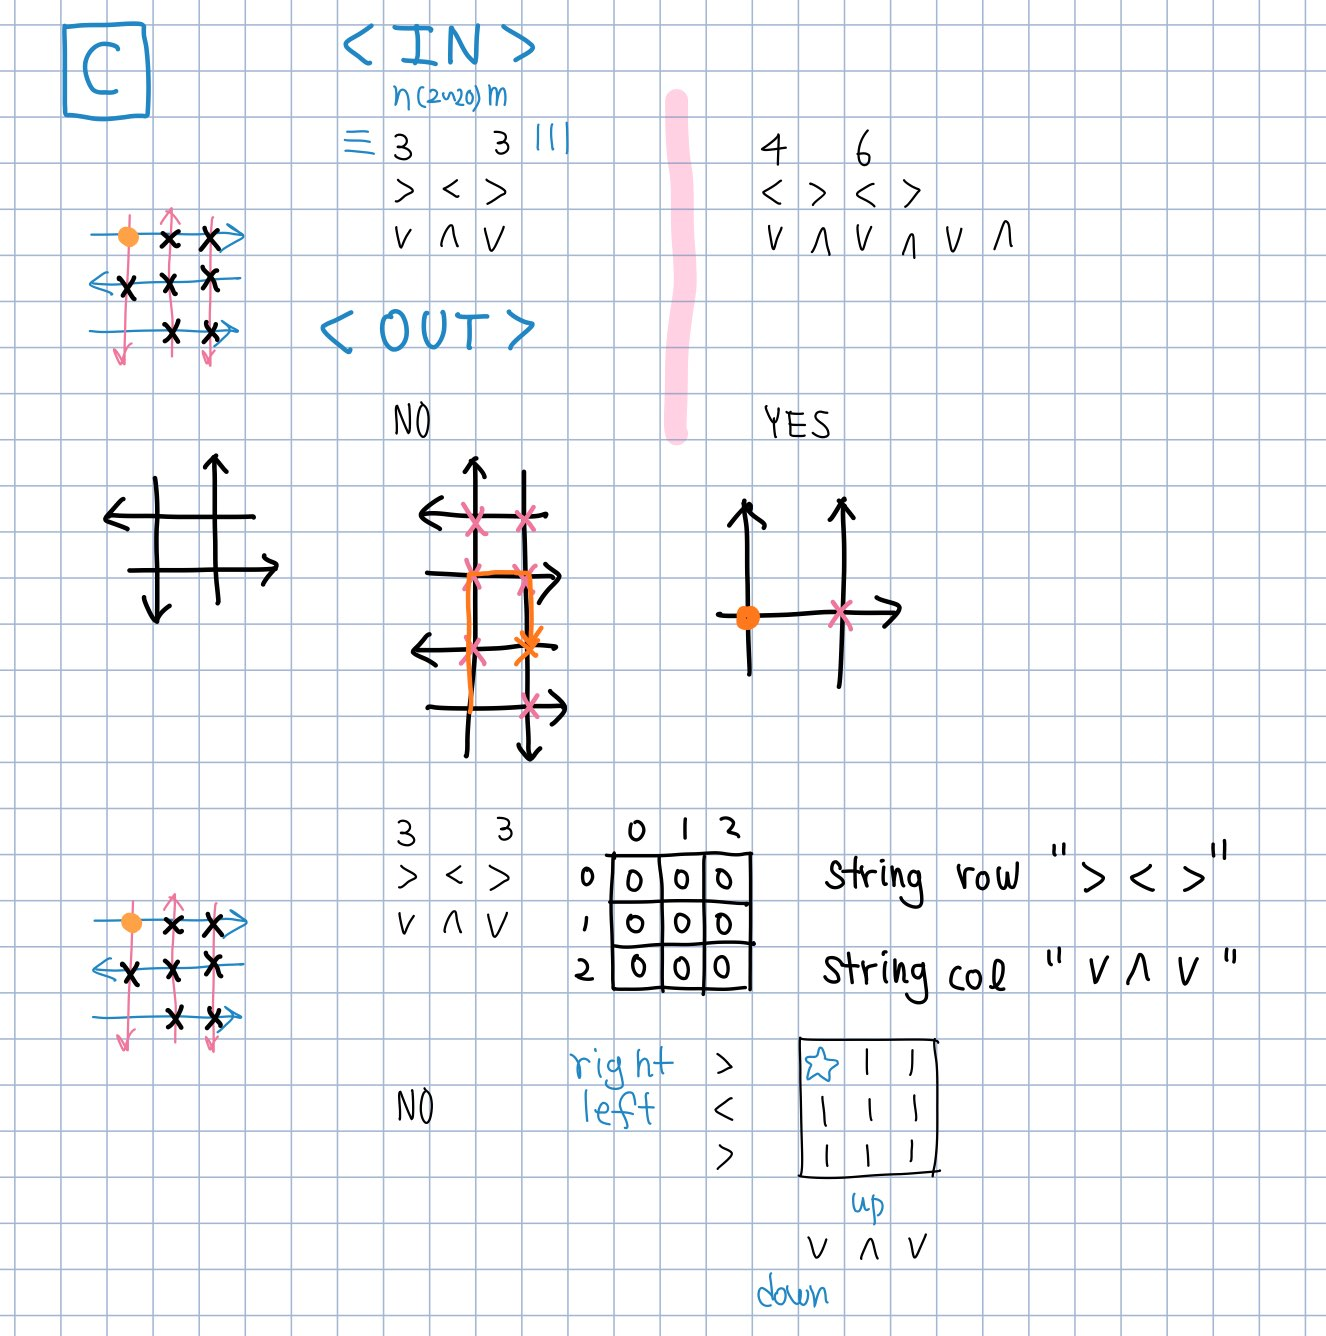 C
< IN >
n(2~20) m
3 3
> < >
∨ ∧ ∨
4 6
< > < >
∨ ∧ ∨ ∧ ∨ ∧
< OUT >
NO
YES
3 3
> < >
∨ ∧ ∨
NO
0 1 2
0 0 0 0
1 0 0 0
2 0 0 0
string row "> < >"
string col "∨ ∧ ∨"
right > ☆ 1 1
left < 1 1 1
> 1 1 1
up
∨ ∧ ∨
down